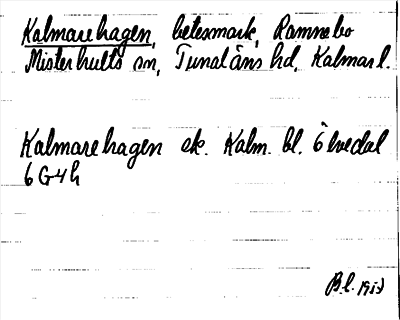 Kalmarehagen, betesmark, Ramnebo
Misterhults sn, Tunaläns hd, Kalmar l.
Kalmarehagen ek. Kalm. bl. Ölvedal
6G4h
B.l.